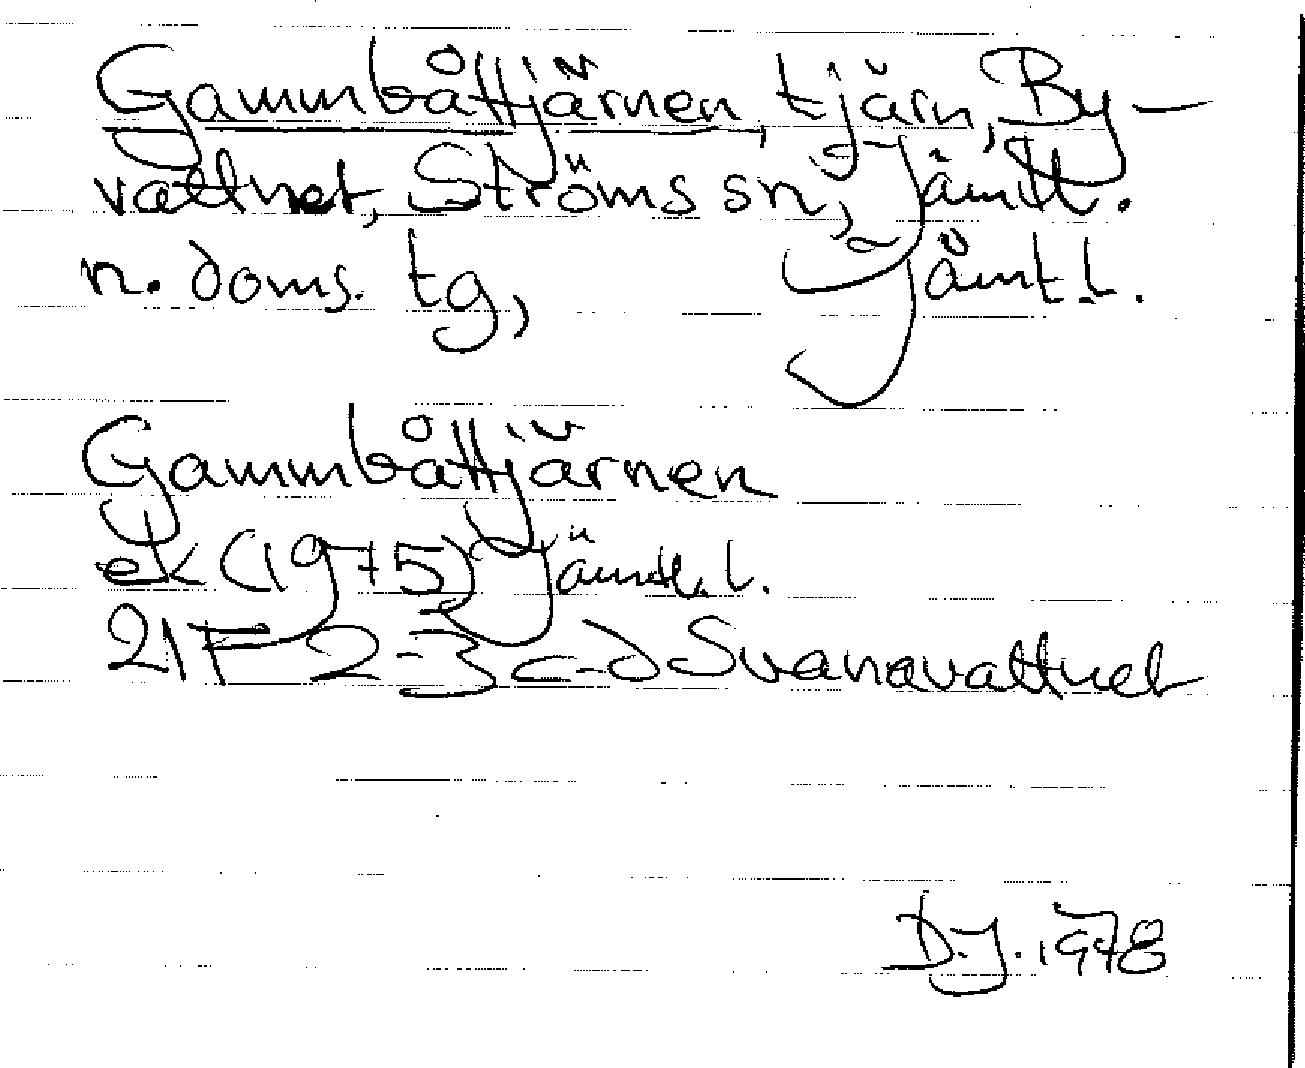 Gammbåttjärnen, tjärn, By-
vattnet, Ströms sn, Jämtl.
n. doms. tg, Jämt. l.
Gammbåttjärnen
ek (1975) Jämtl. l.
21F 2-3 c-d Svanavattnet
D.J. 1978